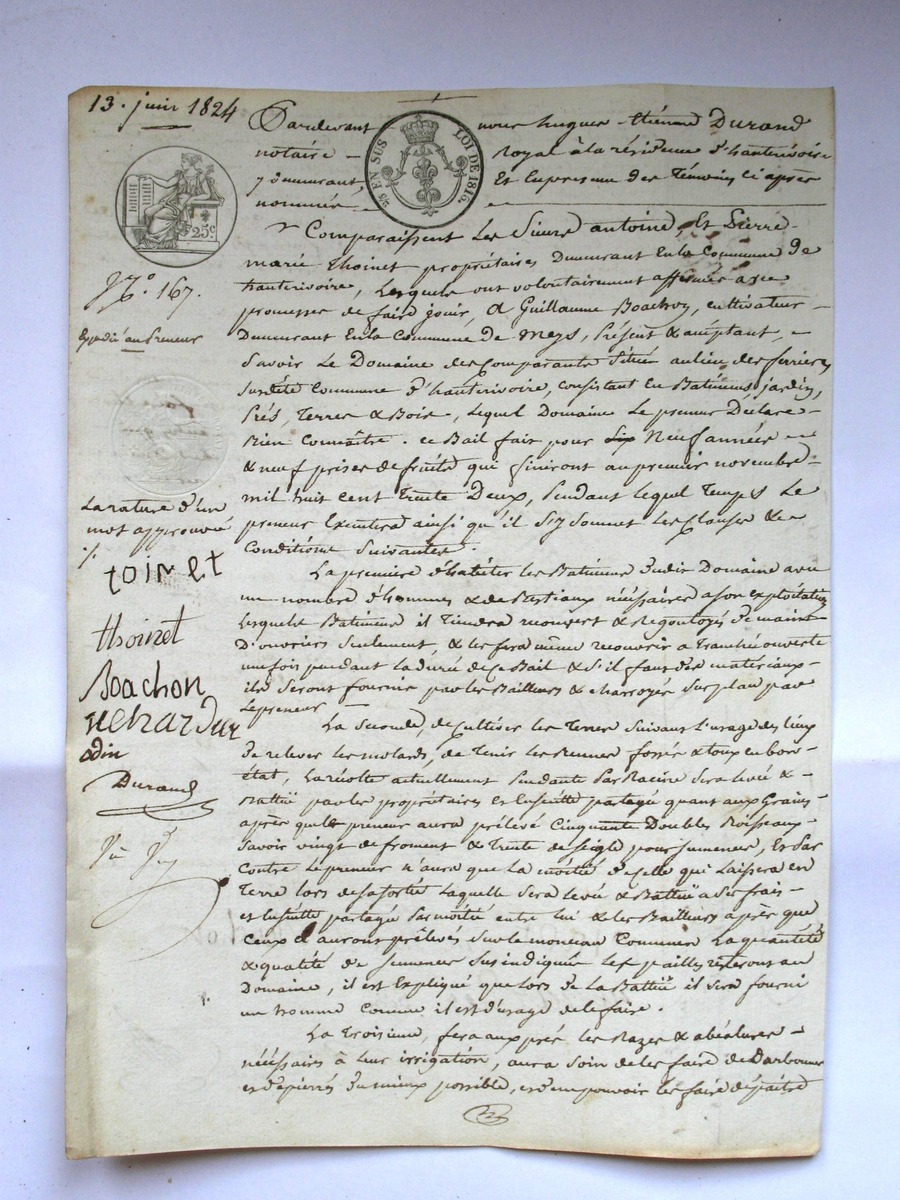 13. juin 1824
Pardevant nous hugues-étienne Durand
notaire royal à la résidence d'hauterivoire
y demeurant, Et En présence des Témoins ci après
nommés
5/5 EN SUS LOI DE 1816.
25c
Comparaissent Les Sieurs antoine Et Pierre
marie Thoinet propriétaires Demeurant En la Commune de
hauterivoire, Lesquels ont volontairement affermés avec
promesse de faire jouir, A Guillaume Boachon, cultivateur
Demeurant En la Commune de Meys, Présent & acceptant,
Savoir Le Domaine des Comparants Situé au lieu des ferrieres
Susdite Commune d'hauterivoire, consistant En Batimens, jardin,
Prés, Terres & Bois, Lequel Domaine Le preneur Déclare
Bien Connaître. ce Bail fait pour Six Neuf années
& neuf prises de fruits qui finiront au premier novembre
mil huit cent Trente Deux, Pendant lequel Temps Le
preneur Executera ainsi qu'il S'y Soumet Les Clauses &
Conditions Suivantes.
N.º 167.
Expédié au Preneur
La rature d'un
mot approuvé
toinet
Thoinet
Boachon
Durand
La premiere d'habiter les Batimens dudit Domaine avec
un nombre d'hommes & de Bestiaux nécéssaires a son exploitation
Lesquels Batimens il Tiendra recouvert & Regoutoyés De main
D'ouvriers Seulement, & les fera même recouvrir a Tranchée ouverte
une fois pendant la durée de ce Bail & S'il faut des matériaux
ils Seront fournis par les Bailleurs & charroyés Sur place par
Le preneur
La Seconde, de Cultiver les Terres Suivant l'usage des lieux
De relever les molards, de Tenir les fossés & tout en bon
état, La récolte actuellement Pendante Par Racine Sera levée &
Battue par les propriétaires Et Ensuite partagée quant aux Grains
après que le preneur aura prélevé Cinquante Doubles Boisseaux
Savoir vingt de froment & Trente de Seigle pour Semences, Et Par
Contre Le preneur n'aura que La moitié d'Icelle qui Laissera en
Terre lors de sa sortie Laquelle Sera levée & Battue a Ses frais
et Ensuite partagée Par moitié entre lui & les Bailleurs après que
Ceux ci auront prélevés Sur le monceau Commun La quantité
& qualité de Semences Sus indiquée Les pailles resteront au
Domaine, il est Expliqué que lors de La Battue il Sera fourni
un homme Comme il est d'usage de le faire.
La Troisieme, fera aux prés les Razes & abéalures
nécéssaires à leur irrigation, aura Soin de les faire de Darbonner
et d'épierrés Du mieux possible, et de ne pouvoir les faire dépaître